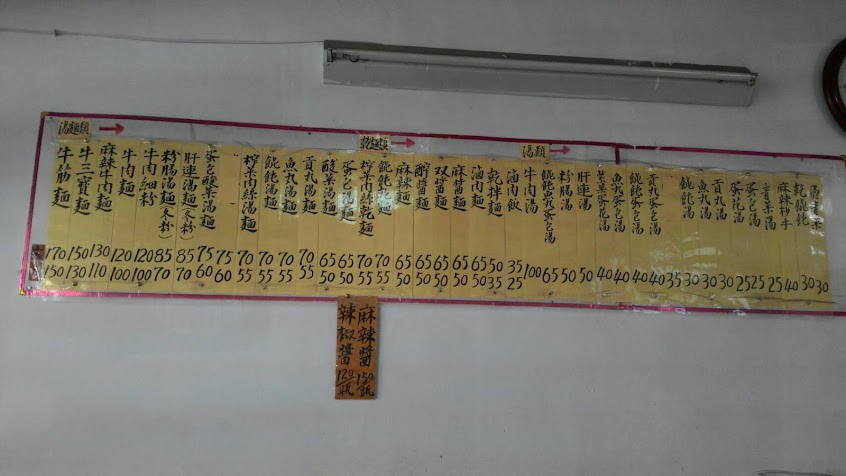 湯麵類
牛筋麵 170 150
牛三寶麵 150 130
麻辣牛肉麵 130 110
牛肉麵 120 100
牛肉細粉 120 100
粉腸湯麵(冬粉) 85 70
肝連湯麵(冬粉) 85 70
蛋包酸菜湯麵 75 60
75 60
榨菜肉絲湯麵 75 55
餛飩湯麵 70 55
魚丸湯麵 70 55
貢丸湯麵 70 55
酸菜湯麵 65 50
蛋包湯麵 65 50
乾麵類
榨菜肉絲乾麵 70 55
餛飩乾麵 70 55
麻辣麵 65 50
酢醬麵 65 50
双醬麵 65 50
麻醬麵 65 50
滷肉麵 65 50
乾拌麵 50 35
滷肉飯 35 25
湯類
牛肉湯 100
餛飩魚丸蛋包湯 65
粉腸湯 50
肝連湯 50
菜蛋花湯 40
魚丸蛋包湯 40
餛飩蛋包湯 40
貢丸蛋包湯 40
35
餛飩湯 30
魚丸湯 30
貢丸湯 30
蛋花湯 25
蛋包湯 25
青菜湯 25
麻辣抄手 40
乾餛飩 30
青菜 30
麻辣醬 150瓶
辣椒醬 120瓶